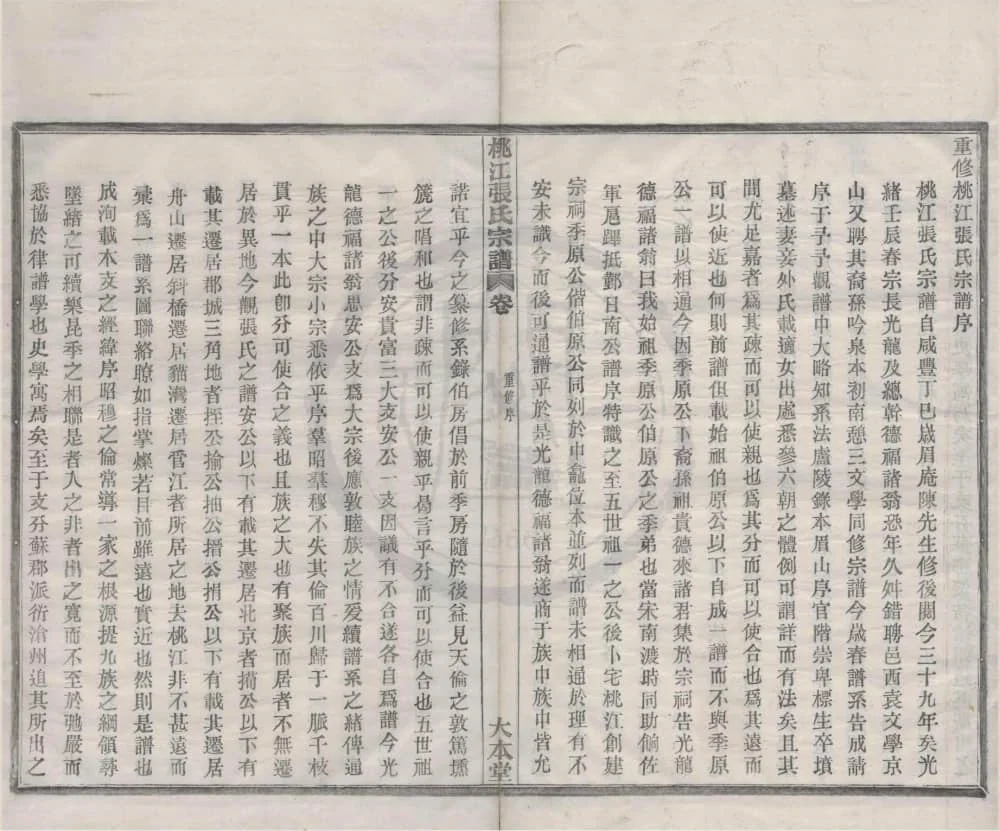 重修桃江張氏宗譜序
桃江張氏宗譜自咸豐丁巳嵗眉庵陳先生修後閱今三十九年矣光
緒壬辰春宗長光龍及總幹德福諸翁恐年久舛錯聘邑西袁文學京
山又聘其裔孫吟泉本初南憩三文學同修宗譜今嵗春譜系告成請
序于予予觀譜中大略知系法盧陵錄本眉山序官階崇卑標生卒墳
墓述妻妾外氏載適女出處悉參六朝之體例可謂詳而有法矣且其
間尤足嘉者爲其疎而可以使親也爲其分而可以使合也爲其遠而
可以使近也何則前譜但載始祖伯原公以下自成一譜而不與季原
公一譜以相通今因季原公下裔孫祖貴德來諸君集於宗祠告光龍
德福諸翁曰我始祖季原公伯原公之季弟也當宋南渡時同助餉佐
軍扈蹕抵鄞日南公譜序特識之至五世祖一之公後卜宅桃江創建
宗祠季原公偕伯原公同列於中龕位本並列而譜未相通於理有不
安未識今而後可通譜乎於是光龍德福諸翁遂商于族中族中皆允
桃江張氏宗譜
卷
重修序
大本堂
諾宜乎今之纂修系錄伯房倡於前季房隨於後益見天倫之敦篤壎
篪之唱和也謂非疎而可以使親乎曷言乎分而可以使合也五世祖
一之公後分安貴富三大支安公一支因議有不合遂各自爲譜今光
龍德福諸翁思安公支爲大宗後應敦睦族之情爰續譜系之緒俾通
族之中大宗小宗悉依乎序羣昭羣穆不失其倫百川歸于一脈千枝
貫乎一本此卽分可使合之義也且族之大也有聚族而居者不無遷
居於異地今觀張氏之譜安公以下有載其遷居北京者揃公以下有
載其遷居郡城三角地者挃公揄公抽公搢公捐公以下有載其遷居
舟山遷居斜橋遷居貓灣遷居昏江者所居之地去桃江非不甚遠而
彙爲一譜系圖聯絡瞭如指掌燦若目前雖遠也實近也然則是譜也
成洵載本支之經緯序昭穆之倫常導一家之根源提九族之綱領尋
墜緒之可續樂昆季之相聯是者入之非者出之寬而不至於弛嚴而
悉協於律譜學也史學寓焉矣至于支分蘇郡派衍滄州追其所出之